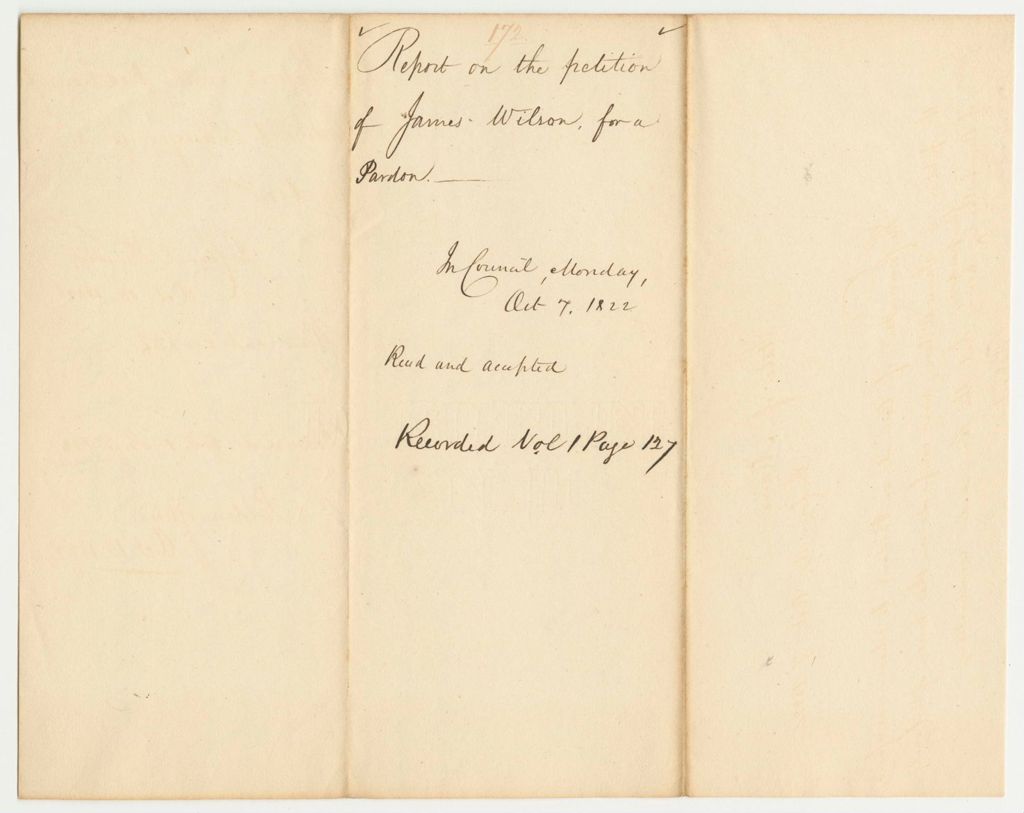 172
Report on the petition
of James Wilson, for a
Pardon.
In Council, Monday,
Oct 7. 1822
Read and accepted
Recorded Vol 1 Page 127